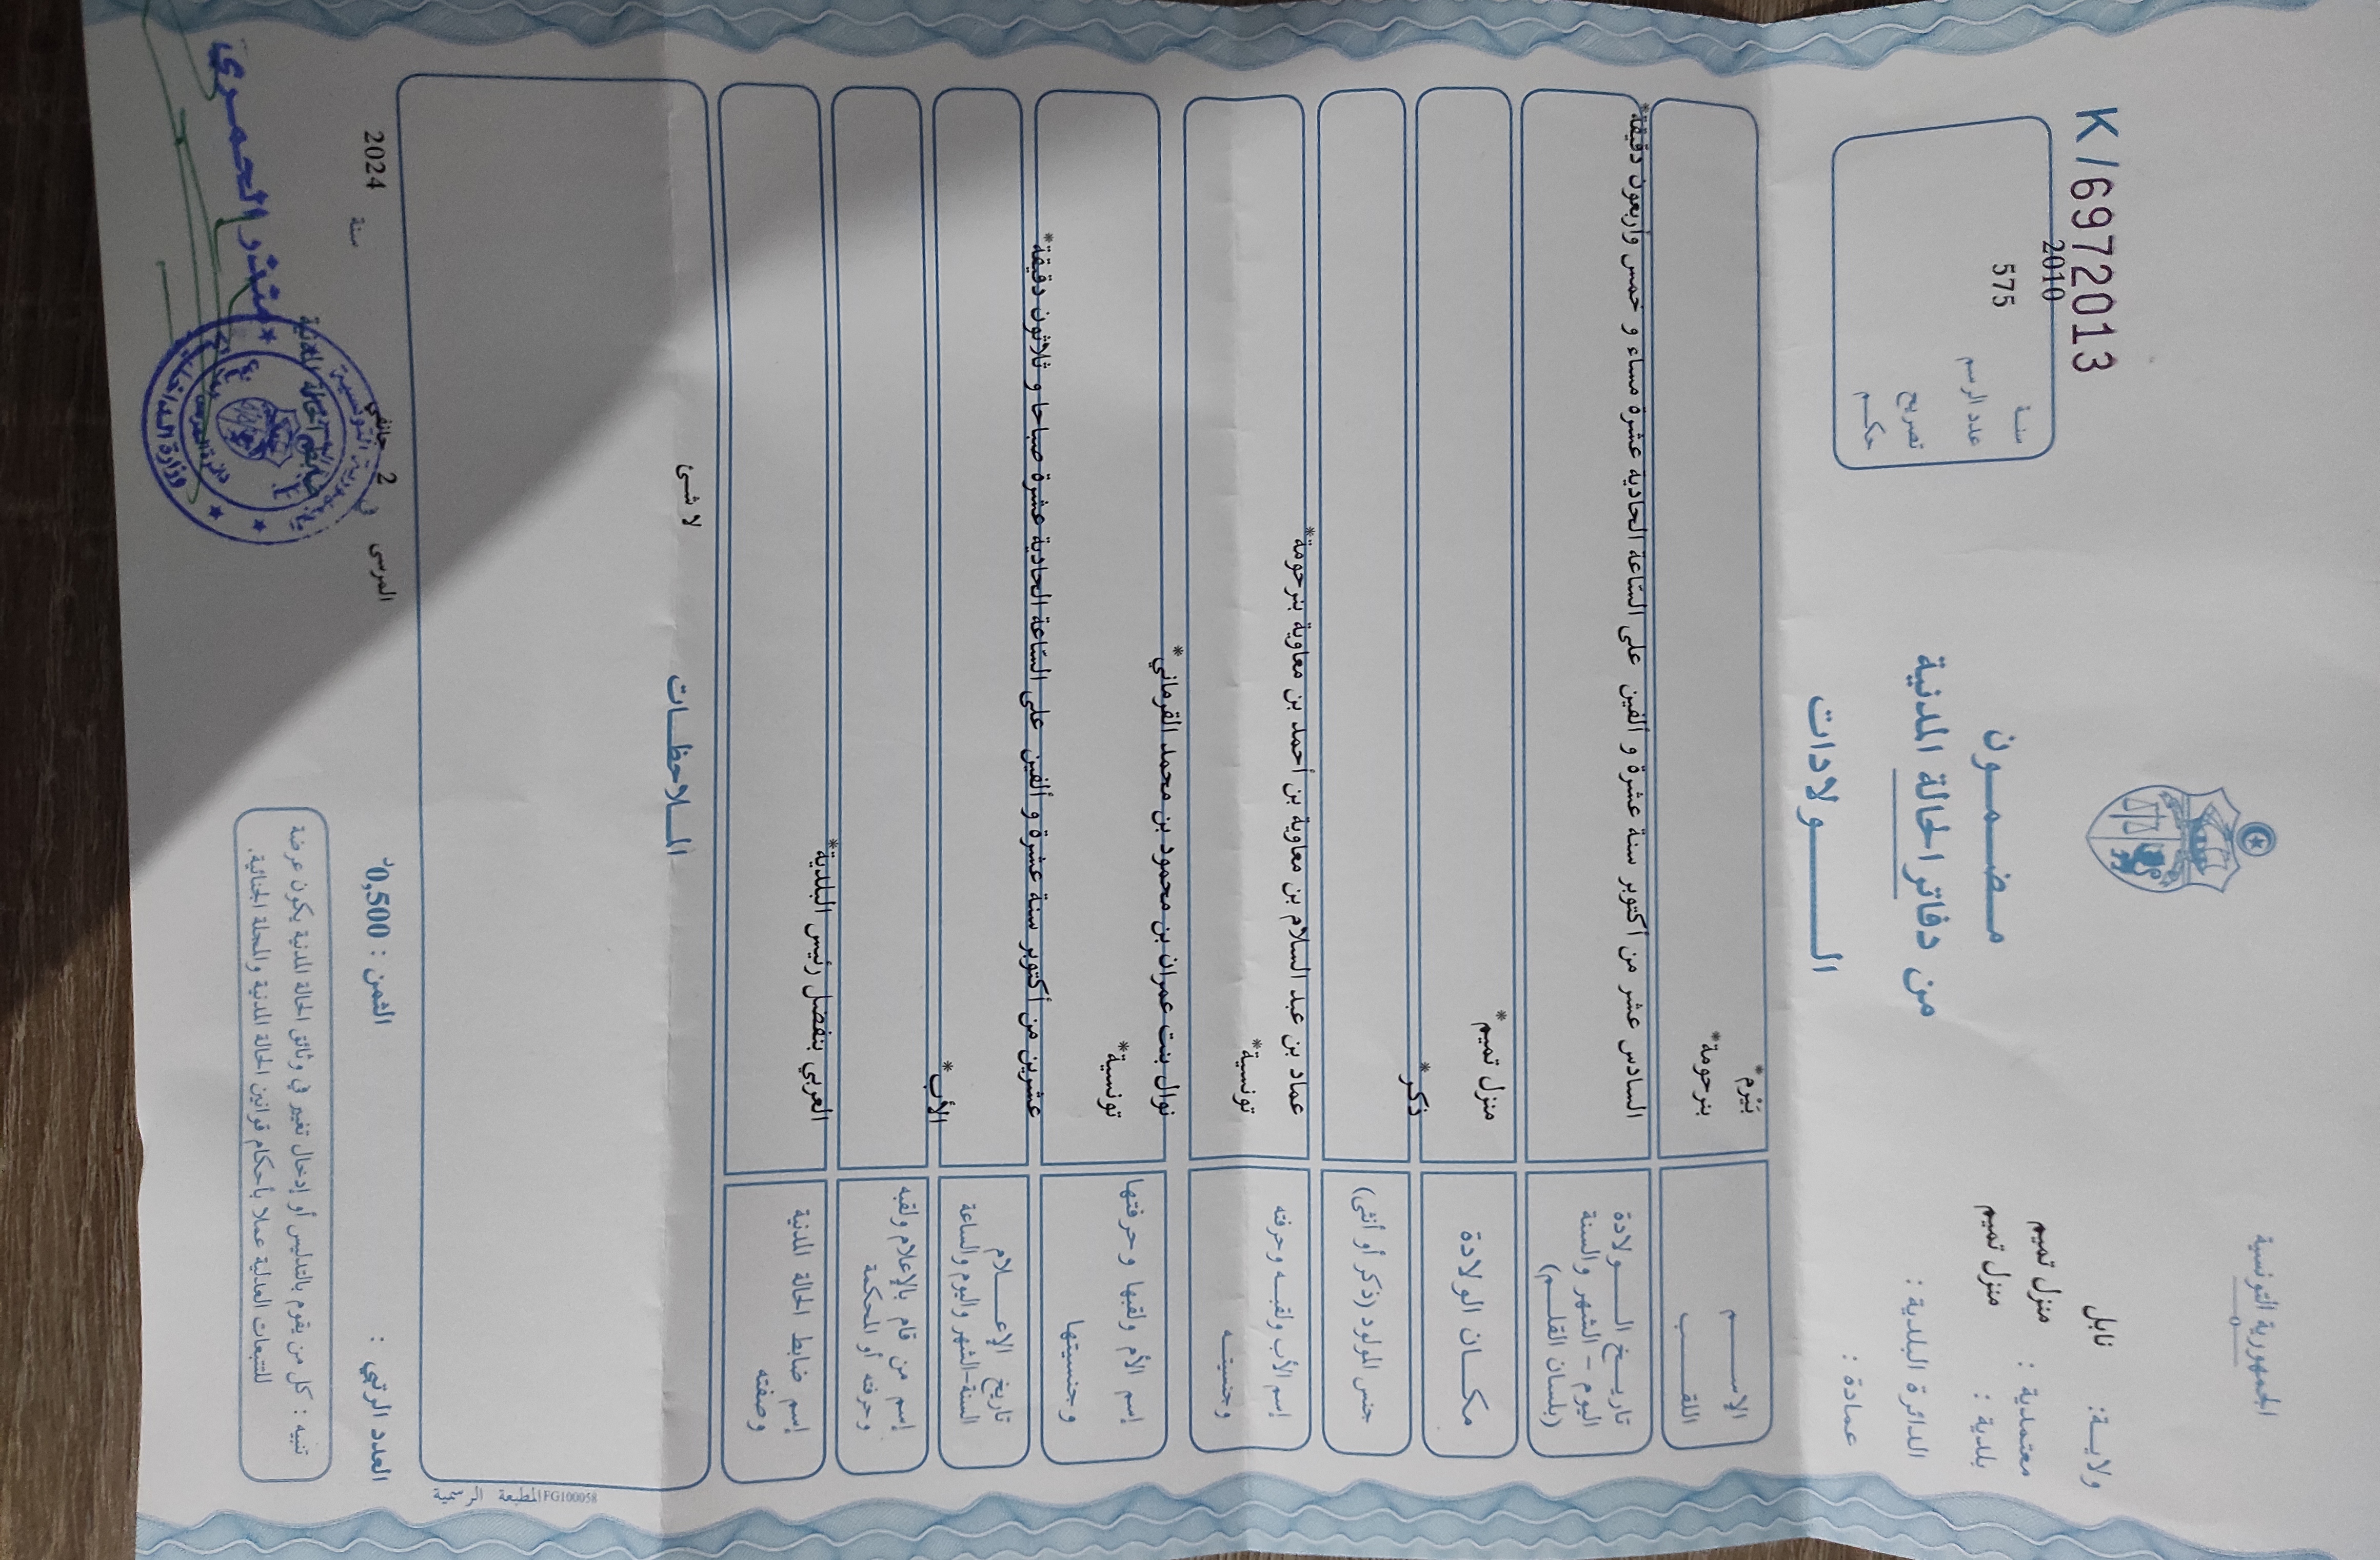 الجمهورية التونسية
ولايـة: نابل
معتمدية : منزل تميم
بلدية : منزل تميم
الدائرة البلدية :
عمادة :
K/69722013
سنـة 2010
عدد الرسم 575
تصريح
حكـم
مـضـمـون
من دفاتر الحالة المدنية
الـــولادات
الإســـم بَيْرم*
اللقـــب بنرحومة*
تاريـخ الـــولادة
اليوم - الشهر والسنة
(بلسان القلـم)
السادس عشر من أكتوبر سنة عشرة و ألفين على السّاعة الحادية عشرة مساء و خمس وأربعون دقيقة*
مكـان الولادة منزل تميم*
جنس المولود (ذكر أو أنثى) ذكر*
إسم الأب ولقبـه وحرفته عماد بن عبد السلام بن معاوية بن أحمد بن معاوية بنرحومة*
وجنسيتـه تونسية*
إسم الأم ولقبها وحرفتها نوال بنت عمران بن محمود بن محمد القرماني*
وجنسيتها تونسية*
تاريخ الإعـــلام
السنة-الشهر واليوم والساعة
عشرين من أكتوبر سنة عشرة و ألفين على السّاعة الحادية عشرة صباحا و ثلاثون دقيقة*
إسم من قام بالإعلام ولقبه
وحرفته أو المحكمة
الأب*
إسم ضابط الحالة المدنية
وصفته
العربي بنفضل رئيس البلدية*
المـلاحظـات
لا شئ
المطبعة الرسمية FG100058
العدد الرتبي :
الثمن : 0,500د
المرسى في 2 جانفي سنة 2024
ضابط الحالة المدنية
منذر الحمري
وزارة الداخلية
تنبيه : كل من يقوم بالتدليس أو إدخال تغيير في وثائق الحالة المدنية يكون عرضة
للتتبعات العدلية عملا بأحكام قوانين الحالة المدنية والمجلة الجنائية.